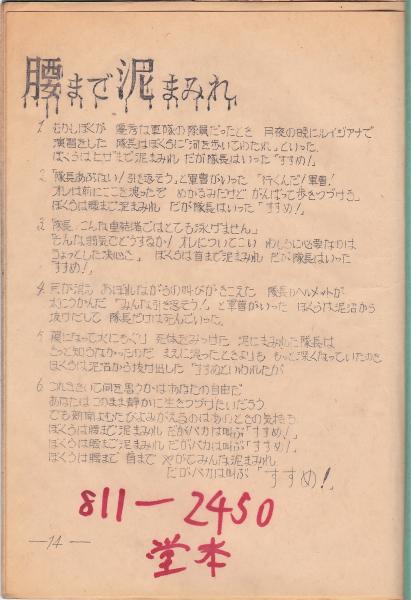 腰まで泥まみれ
1. むかしぼくが 優秀な軍隊の隊員だったとき 月夜の晩にルイジアナで
演習をした 隊長はぼくらに「河を歩いてわたれ」といった
ぼくらはヒザまで泥まみれ だが隊長はいった「すすめ!」
2. 「隊長あぶない!引き返そう」と軍曹がいった 「行くんだ!軍曹!
オレは前にここを渡ったぞ ぬかるみだけど がんばって歩きつづけろ」
ぼくらは腰まで泥まみれ だが隊長はいった「すすめ!」
3. 「隊長 こんな重装備ではとても泳げません」
「そんな弱気でどうするか! オレについてこい わしらに必要なのは
ちょっとした決心さ」 ぼくらは首まで泥まみれ だが隊長はいった
「すすめ!」
4. 月が消え おぼれながらの叫びがきこえた 隊長のヘルメットが
水にうかんだ 「みんな引き返そう!」と軍曹がいった ぼくらは泥沼から
抜けだして 隊長だけは死んでいった
5. 裸になって水にもぐり 死体をみつけた 泥にまみれた隊長は
きっと知らなかったのだ まえに渡ったときよりも もっと深くなっていたのを
ぼくらは泥沼から抜け出した 「すすめ」といわれたが
6. これをきいて何を思うかはあなたの自由だ
あなたはこのまま静かに生きつづけたいだろう
でも新聞よむたびよみがえるのはあのときの気持ち
ぼくらは腰まで泥まみれ だがバカは叫ぶ「すすめ!」
ぼくらは腰まで泥まみれ だがバカは叫ぶ「すすめ!」
ぼくらは腰まで 首まで やがてみんな泥まみれ
だがバカは叫ぶ「すすめ!」
811-2450
堂本
-14-